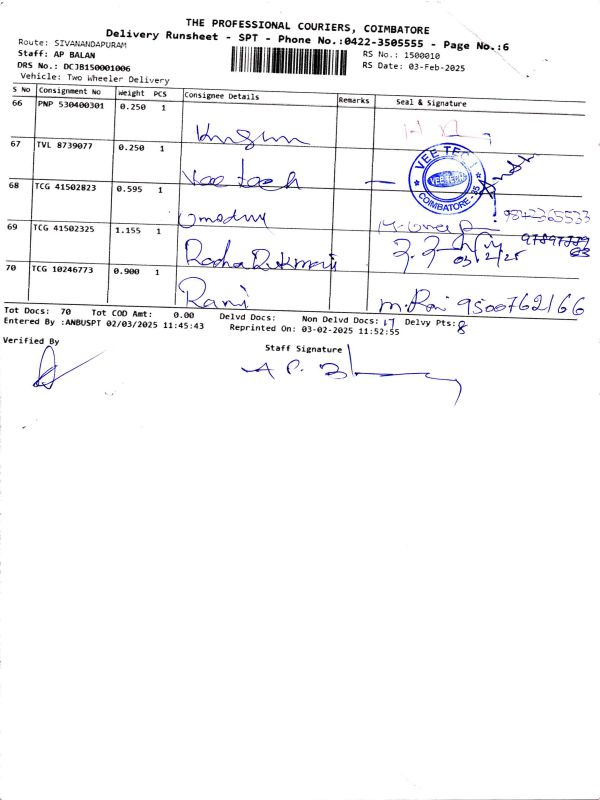 THE PROFESSIONAL COURIERS, COIMBATORE
Delivery Runsheet - SPT - Phone No.:0422-3505555 - Page No.:6
Route: SIVANANDAPURAM
Staff: AP BALAN RS No.: 1500010
DRS No.: DCJB150001006 RS Date: 03-Feb-2025
Vehicle: Two Wheeler Delivery
S No Consignment No Weight PCS Consignee Details Remarks Seal & Signature
66 PNP 530400301 0.250 1
67 TVL 8739077 0.250 1 Vee tech
VEE TECH
COIMBATORE - 35
68 TCG 41502823 0.595 1
69 TCG 41502325 1.155 1 Radha Rukmani 03/2/25
70 TCG 10246773 0.900 1 Rani M. Rani 9500762166
Tot Docs: 70 Tot COD Amt: 0.00 Delvd Docs: Non Delvd Docs: 17 Delvy Pts: 8
Entered By :ANBUSPT 02/03/2025 11:45:43 Reprinted On: 03-02-2025 11:52:55
Verified By
Staff Signature
A P. B